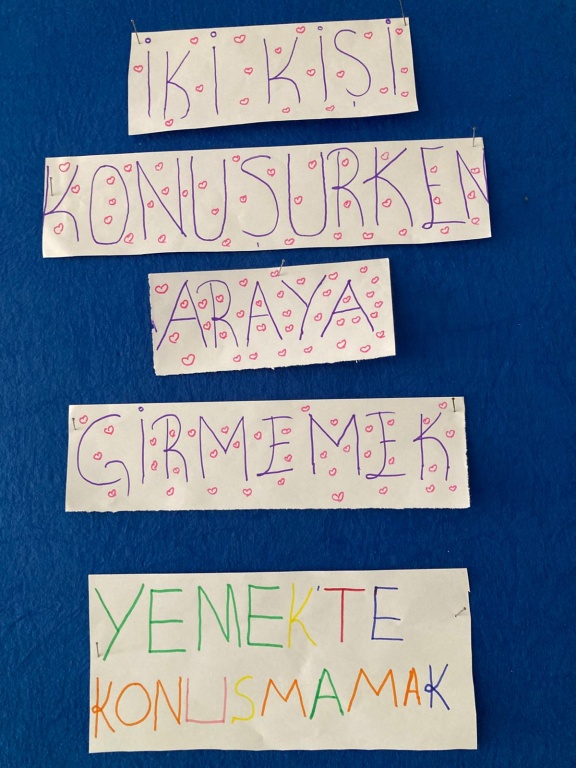 İKİ KİŞİ
KONUŞURKEN
ARAYA
GİRMEMEK
YEMEK'TE
KONUSMAMAK